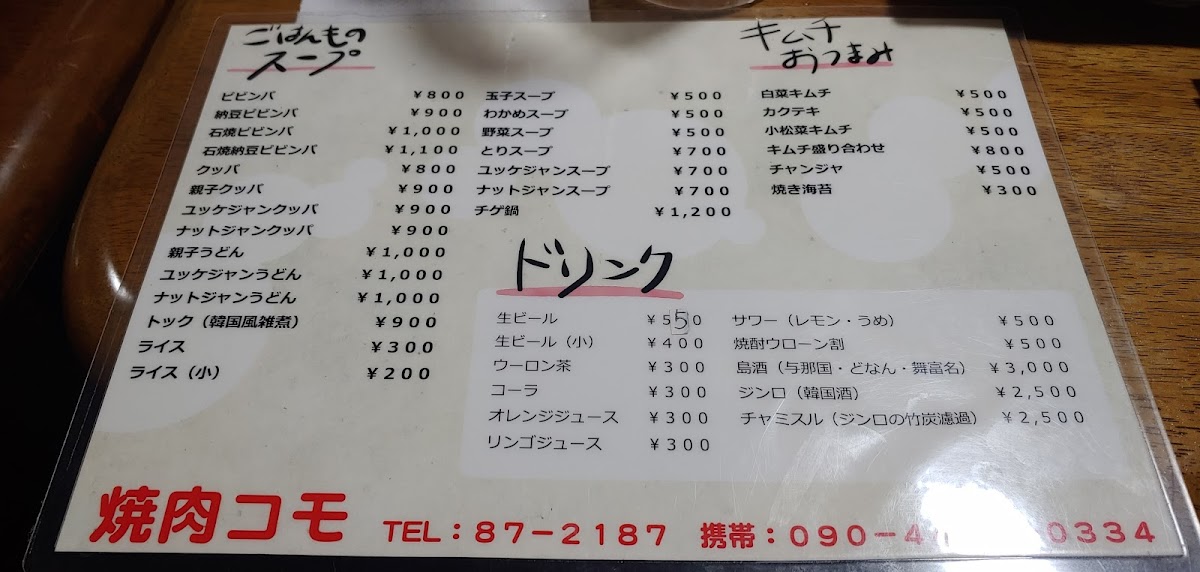 ごはんもの
スープ
ビビンバ ¥800
納豆ビビンバ ¥900
石焼ビビンバ ¥1,000
石焼納豆ビビンバ ¥1,100
クッパ ¥800
親子クッパ ¥900
ユッケジャンクッパ ¥900
ナットジャンクッパ ¥900
親子うどん ¥1,000
ユッケジャンうどん ¥1,000
ナットジャンうどん ¥1,000
トック（韓国風雑煮） ¥900
ライス ¥300
ライス（小） ¥200
玉子スープ ¥500
わかめスープ ¥500
野菜スープ ¥500
とりスープ ¥700
ユッケジャンスープ ¥700
ナットジャンスープ ¥700
チゲ鍋 ¥1,200
キムチ
おつまみ
白菜キムチ ¥500
カクテキ ¥500
小松菜キムチ ¥500
キムチ盛り合わせ ¥800
チャンジャ ¥500
焼き海苔 ¥300
ドリンク
生ビール ¥550
生ビール（小） ¥400
ウーロン茶 ¥300
コーラ ¥300
オレンジジュース ¥300
リンゴジュース ¥300
サワー（レモン・うめ） ¥500
焼酎ウローン割 ¥500
島酒（与那国・どなん・舞富名） ¥3,000
ジンロ（韓国酒） ¥2,500
チャミスル（ジンロの竹炭濾過） ¥2,500
焼肉コモ TEL：87－2187 携帯：090－4 0334